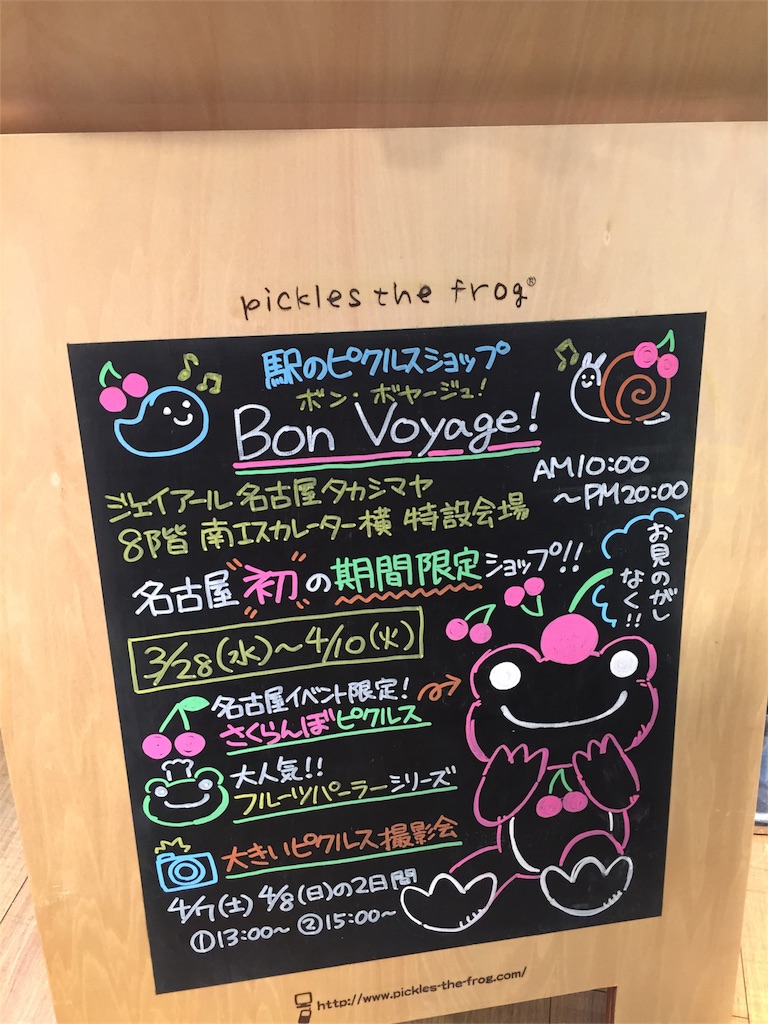 pickles the frog®
駅のピクルスショップ
ボン・ボヤージュ!
Bon Voyage!
AM10:00
~PM20:00
ジェイアール名古屋タカシマヤ
8階 南エスカレーター横 特設会場
名古屋"初"の期間限定ショップ!!
お見のがし
なく!!
3/28(水)~4/10(火)
名古屋イベント限定!
さくらんぼピクルス
大人気!!
フルーツパーラーシリーズ
大きいピクルス撮影会
4/7(土) 4/8(日)の2日間
①13:00~ ②15:00~
http://www.pickles-the-frog.com/